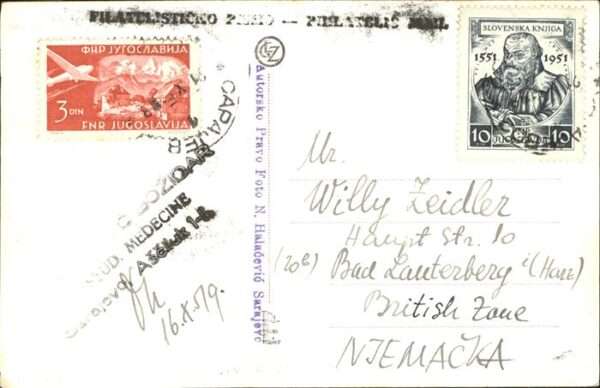 FILATELISTIČKO PISMO — PHILATELIC MAIL
ФНР ЈУГОСЛАВИЈА
3 DIN
FNR JUGOSLAVIJA
САРАЈЕВО
SLOVENSKA KNJIGA
1551 1951
10 10
Autorsko Pravo Foto N. Halačević Sarajevo
BOZIDAR
STUD. MEDECINE
Sarajevo, Ašiluk 1-B.
16.X.
Mr.
Willy Zeidler
Haupt Str. 10
(20b) Bad Lauterberg i/(Harz)
British Zone
NJEMAČKA